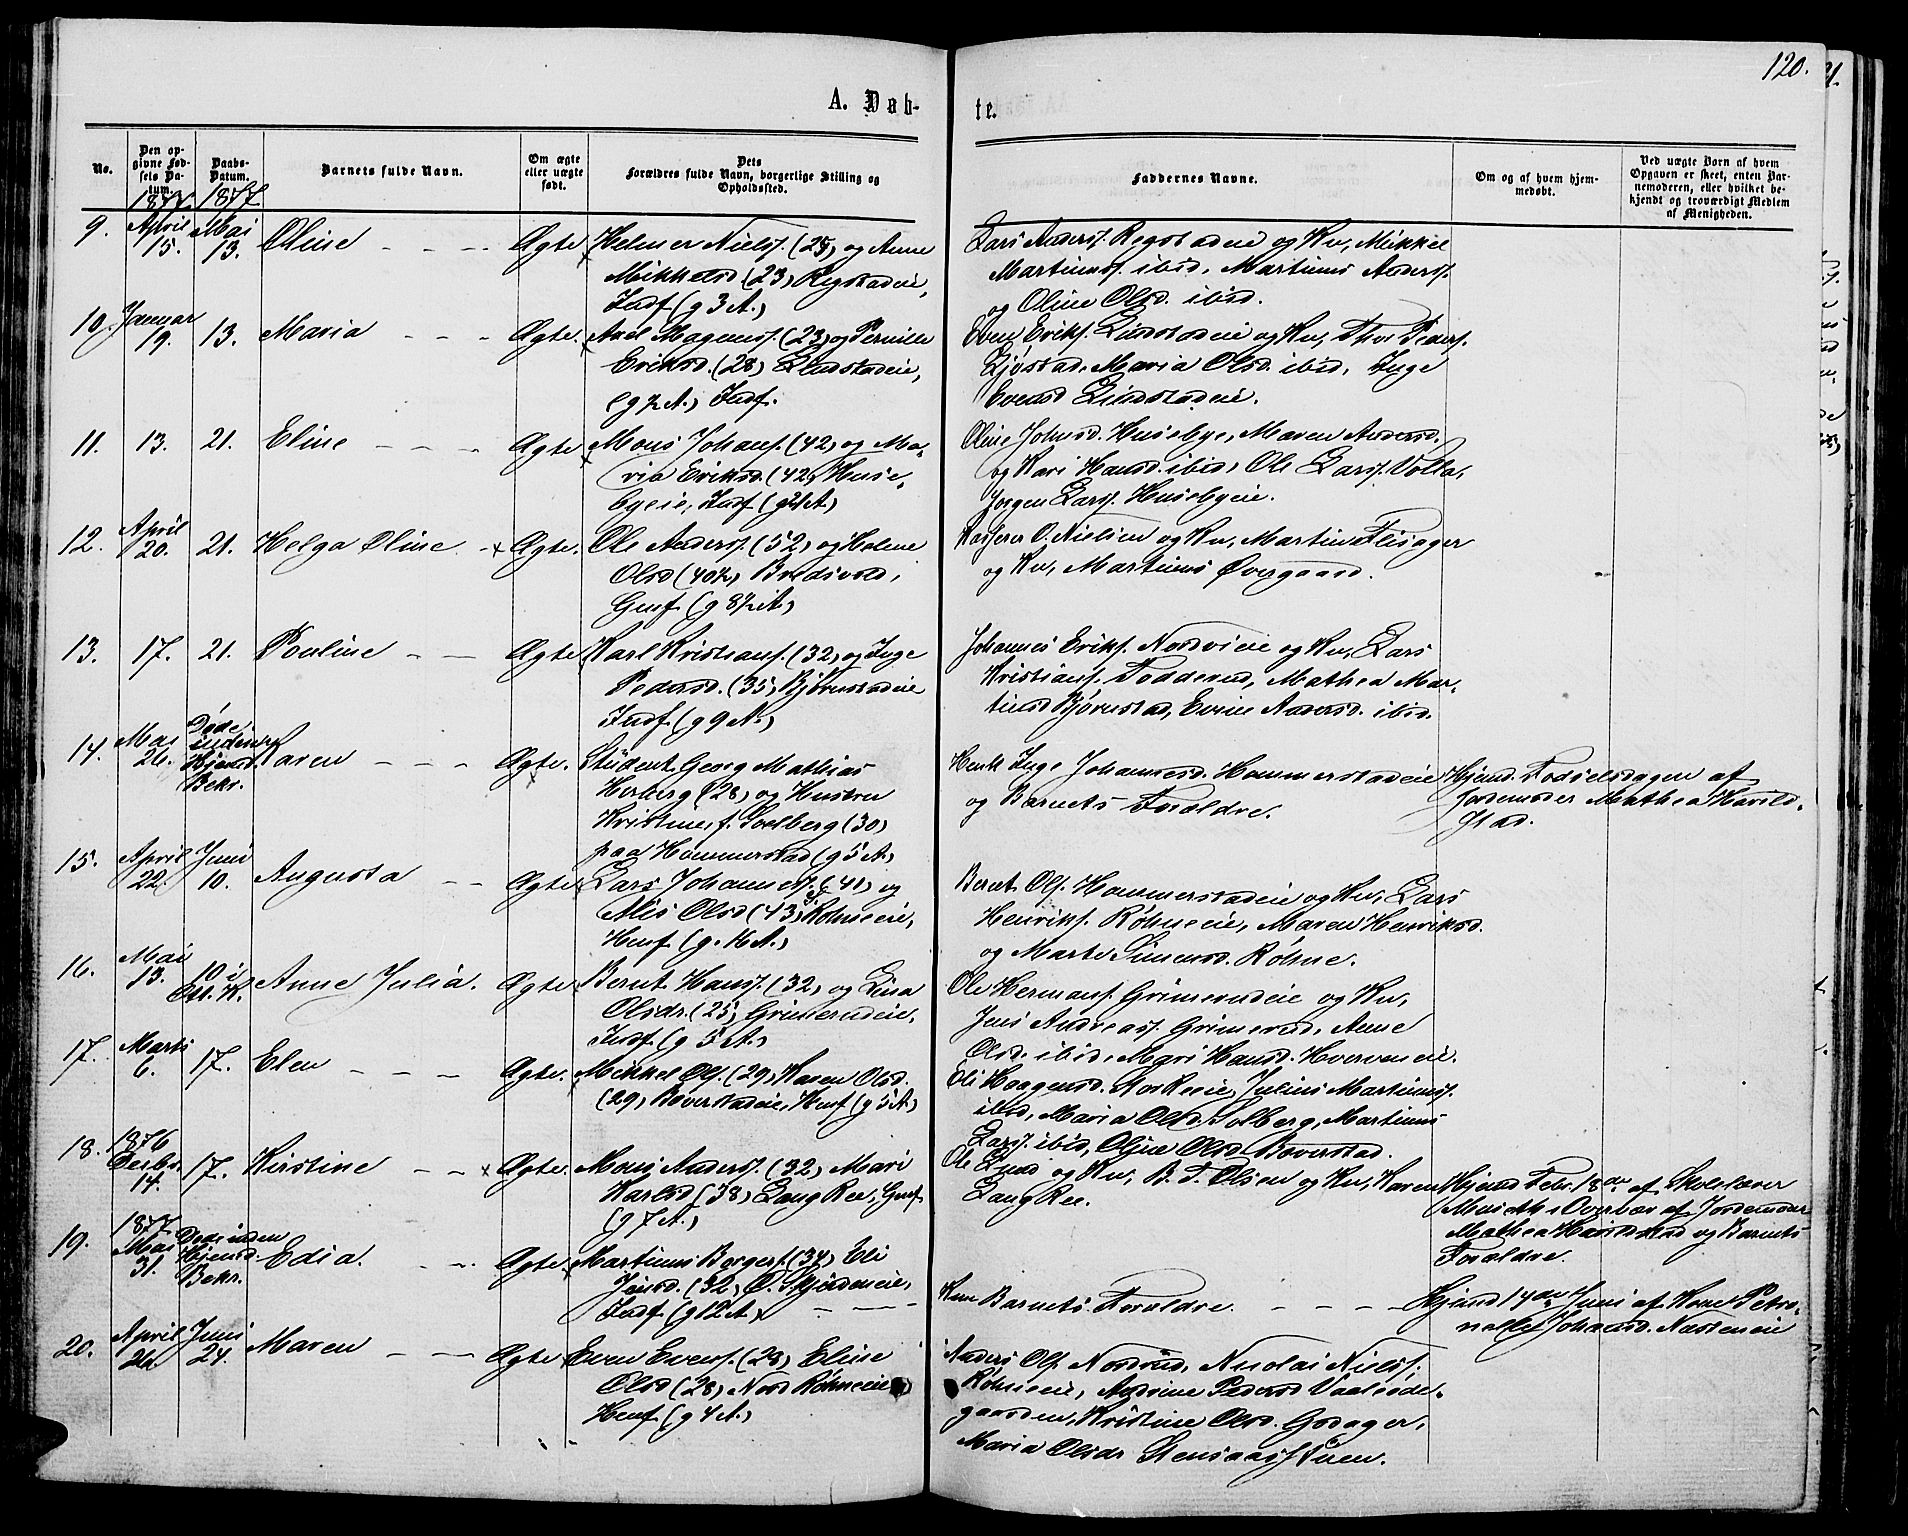 120.
A. Døb-
te.
No.
Den op-
givne Fød-
sels Da-
tum.
Daabs-
Datum.
Barnets fulde Navn.
Om ægte
eller uægte
født.
Dets
Forældres fulde Navn, borgerlige Stilling og
Opholdssted.
Faddernes Navne.
Om og af hvem hjem-
medøbt.
Ved uægte Born af hvem
Opgaven er skeet, enten Bar-
nemoderen, eller hvilket be-
kjendt og troværdigt Medlem
af Menigheden.
1877. 1877.
9. April 15. Mai 13. Oline Ægte Helmer Nielsf. (25) og Anne
Mikkelsd (23) Regstadeie,
Indf (g 3 A)
Lars Andersf. Regstadeie og Kv, Mikkel
Martinusf. ibid, Martinus Andersf.
og Oline Olsd. ibid.
10. Januar 19. 13. Maria Ægte. Axel Magnusf. (23) og Pernille
Eriksd. (28) Lundstadeie,
Indf.
Even Eriksf. Lundstadeie og Kv, Thor Pedersf.
Maria Olsd. ibid, Inge
Evensd
11. 13. 21. Eline Ægte Mons Johansf. (42) og Ma-
ria Eriksd. (42) Huse-
byeie, Indf
Oline Johnsd. Husebye, Maren Andersd.
og Kari Hansd. ibid, Ole Larsf. Volla,
Jørgen Larsf. Husebyeie.
12. April 20. 21. Helga Oline Ægte. Ole Andersf. (52) og Helene
Olsd (40½) Bredsvold,
Gmf. (g 8½ A)
Kasserer O. Nielsen og Kv, Martin Flisager
og Kv, Martinus Øvergaard.
13. 17. 21. Pouline Ægte. Karl Kristiansf. (32) og Inge
Pedersd. (35) Bjørnstadeie
Indf (g 9 A.)
Johannes Eriksf. Nordvieie og Kv, Lars
Kristiansf. Fodderud, Mathea Mar-
tinsd Bjørnstad, Evine Andersd. ibid.
14. Mai 26. Døde inden Hjemd. Bekr. Karen Ægte. Student Georg Mathias
Herberg (28) og Hustru
Kristine, f. Soelberg (30)
paa Hommerstad (g 5 A)
Inge Johannesd. Hommerstadeie
og Barnets Forældre.
Hjemd. Fødselsdagen af
Jordemoder Mathea Harild-
stad.
15. April 22. Juni 10. Augusta Ægte Lars Johannesf. (41) og
Olsd (43) Røhneeie,
Husf (g. 16 A.)
Bernt Olsf. Hommerstadeie og Kv, Lars
Henriksf. Røhneeie, Maren Henriksd.
og Marte Simensd. Røhne.
16. Mai 13. 10 i Anne Julia. Ægte Bernt Hansf. (32) og Lina
Olsdr. (25) Grimerudeie,
Indf (g 5 A.)
Ole Hermansf. Grimerudeie og Kv,
Jens Andreasf. Grimerud, Anne
Olsd. ibid, Mari Hansd.
17. Marts 6. 17. Elen Ægte. Mikkel Olsf. (29) Karen Olsd.
(29) Boverstadeie, Husf (g 5 A)
Eli Haagensd. Julius Martinusf.
ibid, Maria Olsd. Solberg, Martinus
Larsf. ibid, Oline Olsd Boverstad.
18. 1876 Decbr. 14. 17. Kirstine Ægte. Mons Andersf. (32) Mari
Karlsd (38) Lang Ree, Gmf
(g 7 A.)
Ole Lund og Kv, B. T. Olsen og Kv, Karen
Lang Ree.
Hjemd Febr. 18de af Skolelærer
Overbær af Jordemoder
Mathea Harildstad og Barnets
Forældre.
19. 1877 Mai 31. Døde inden Hjemd. Bekr. Edia. Ægte Martinus Borgersf. (34) Eli
Jensd. (32) Ø. Skjerdeneie,
Indf. (g 12 A)
Kun Barnets Forældre.
Hjemd 14de Juni af Kone Petro-
nelle Johansd. Næsteneie
20. April 24. Juni 24. Maren Ægte Even Evensf. (28) Eline
Olsd (28) Nord Røhneeie
Husf. (g 4 A.)
Anders Olsf. Nordrud, Nicolai Nielsf.
Røhneeie, Andrine Pedersd Vaalsode-
gaarden, Kristine Olsd. Godager,
Maria Olsdr